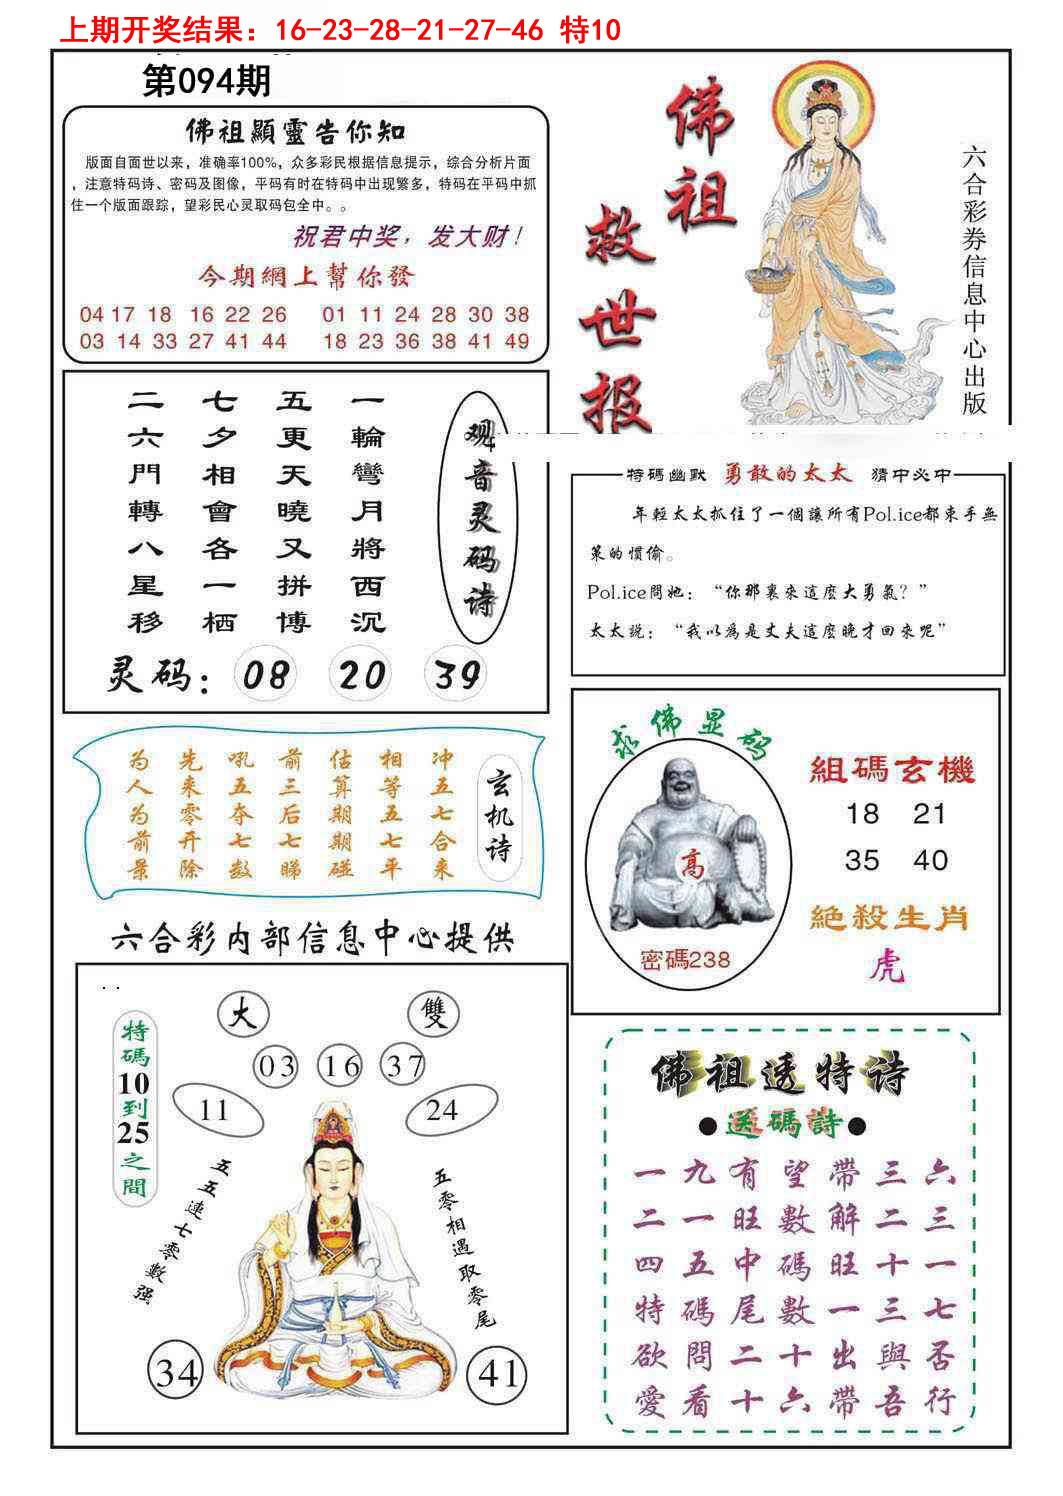 上期开奖结果：16-23-28-21-27-46 特10
第094期
佛祖顯靈告你知
版面自面世以来，准确率100%，众多彩民根据信息提示，综合分析片面
，注意特码诗、密码及图像，平码有时在特码中出现繁多，特码在平码中抓
住一个版面跟踪，望彩民心灵取码包全中。。
祝君中奖，发大财！
今期網上幫你發
04 17 18 16 22 26 01 11 24 28 30 38
03 14 33 27 41 44 18 23 36 38 41 49
佛祖
救世报
六合彩券信息中心出版
观音灵码诗
一輪彎月將西沉
五更天曉又拼博
七夕相會各一栖
二六門轉八星移
灵码：08 20 39
特碼幽默 勇敢的太太 猜中必中
年輕太太抓住了一個讓所有Pol.ice都束手無
策的慣偷。
Pol.ice問她：“你那裏來這麽大勇氣？”
太太說：“我以為是丈夫這麽晚才回來呢”
玄机诗
冲五七合来
相等五七平
估算期期碰
前三后七睇
吼五夺七数
先来零开除
为人为前景
求佛显码
高
密碼238
組碼玄機
18 21
35 40
絕殺生肖
虎
六合彩内部信息中心提供
大
雙
03 16 37
11
24
特碼10到25之間
五五連七零數强
五零相遇取零尾
34
41
佛祖透特诗
●送碼詩●
一九有望帶三六
二一旺數解二三
四五中碼旺十一
特碼尾數一三七
欲問二十出與否
愛看十六帶吾行